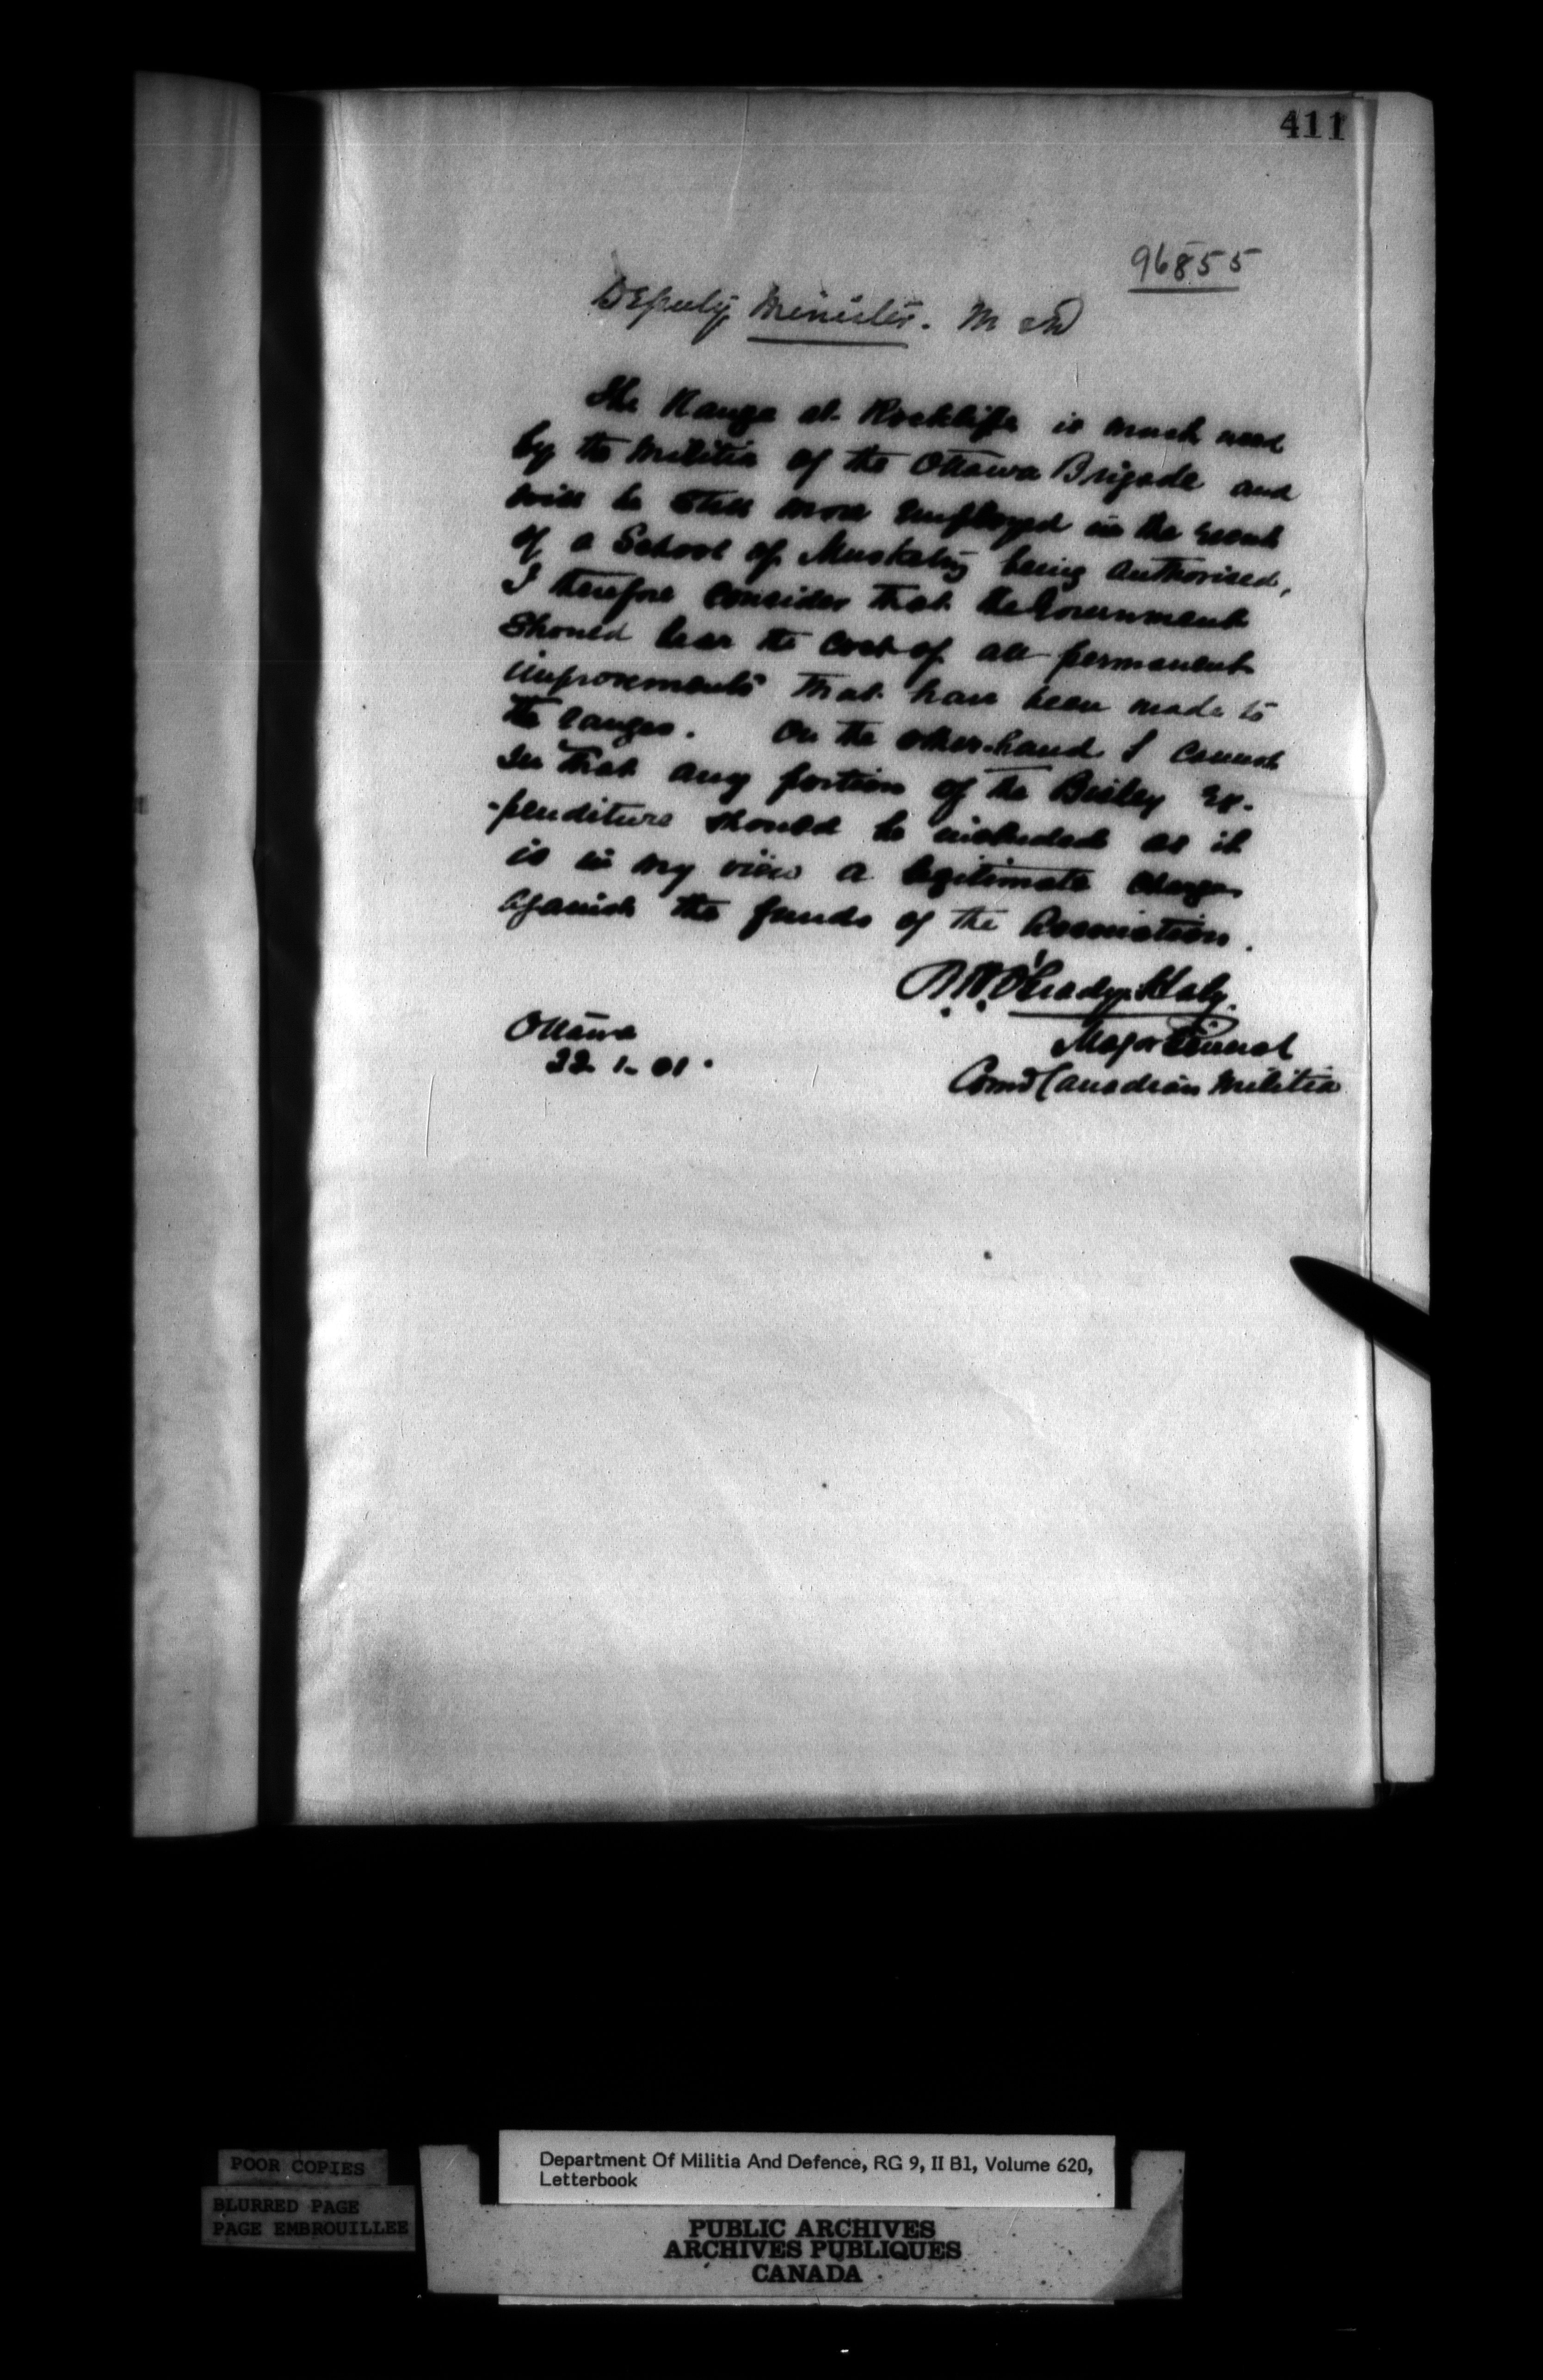 411
96855
Deputy Minister. M & D
The Range at Rockliffe is much used
by the Militia of the Ottawa Brigade and
will be still more employed in the event
of a School of Musketry being authorised,
I therefore consider that the Government
should bear the cost of all permanent
improvements that have been made to
the ranges. On the other hand I cannot
see that any portion of the Bisley Ex-
-penditure should be included as it
is in my view a legitimate charge
against the funds of the Association.
O'Grady Haly.
Major General
Comdg Canadian Militia
Ottawa
22. 1. 01.
POOR COPIES
BLURRED PAGE
PAGE EMBROUILLEE
Department Of Militia And Defence, RG 9, II B1, Volume 620,
Letterbook
PUBLIC ARCHIVES
ARCHIVES PUBLIQUES
CANADA